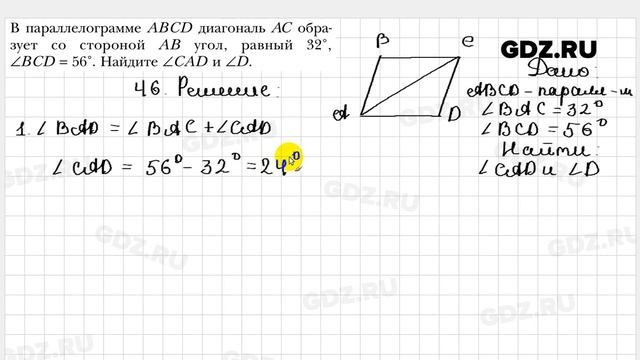 В параллелограмме ABCD диагональ AC обра-
зует со стороной AB угол, равный 32°,
∠BCD = 56°. Найдите ∠CAD и ∠D.
46. Решение:
1. ∠ BAD = ∠ BAC + ∠CAD
∠ CAD = 56° - 32° = 24°
B
C
A
D
GDZ.RU
Дано:
ABCD - парал-м
∠ BAC = 32°
∠ BCD = 56°
Найти:
∠ CAD и ∠D
GDZ.RU
GDZ.RU
GDZ.RU
GDZ.RU
GDZ.RU